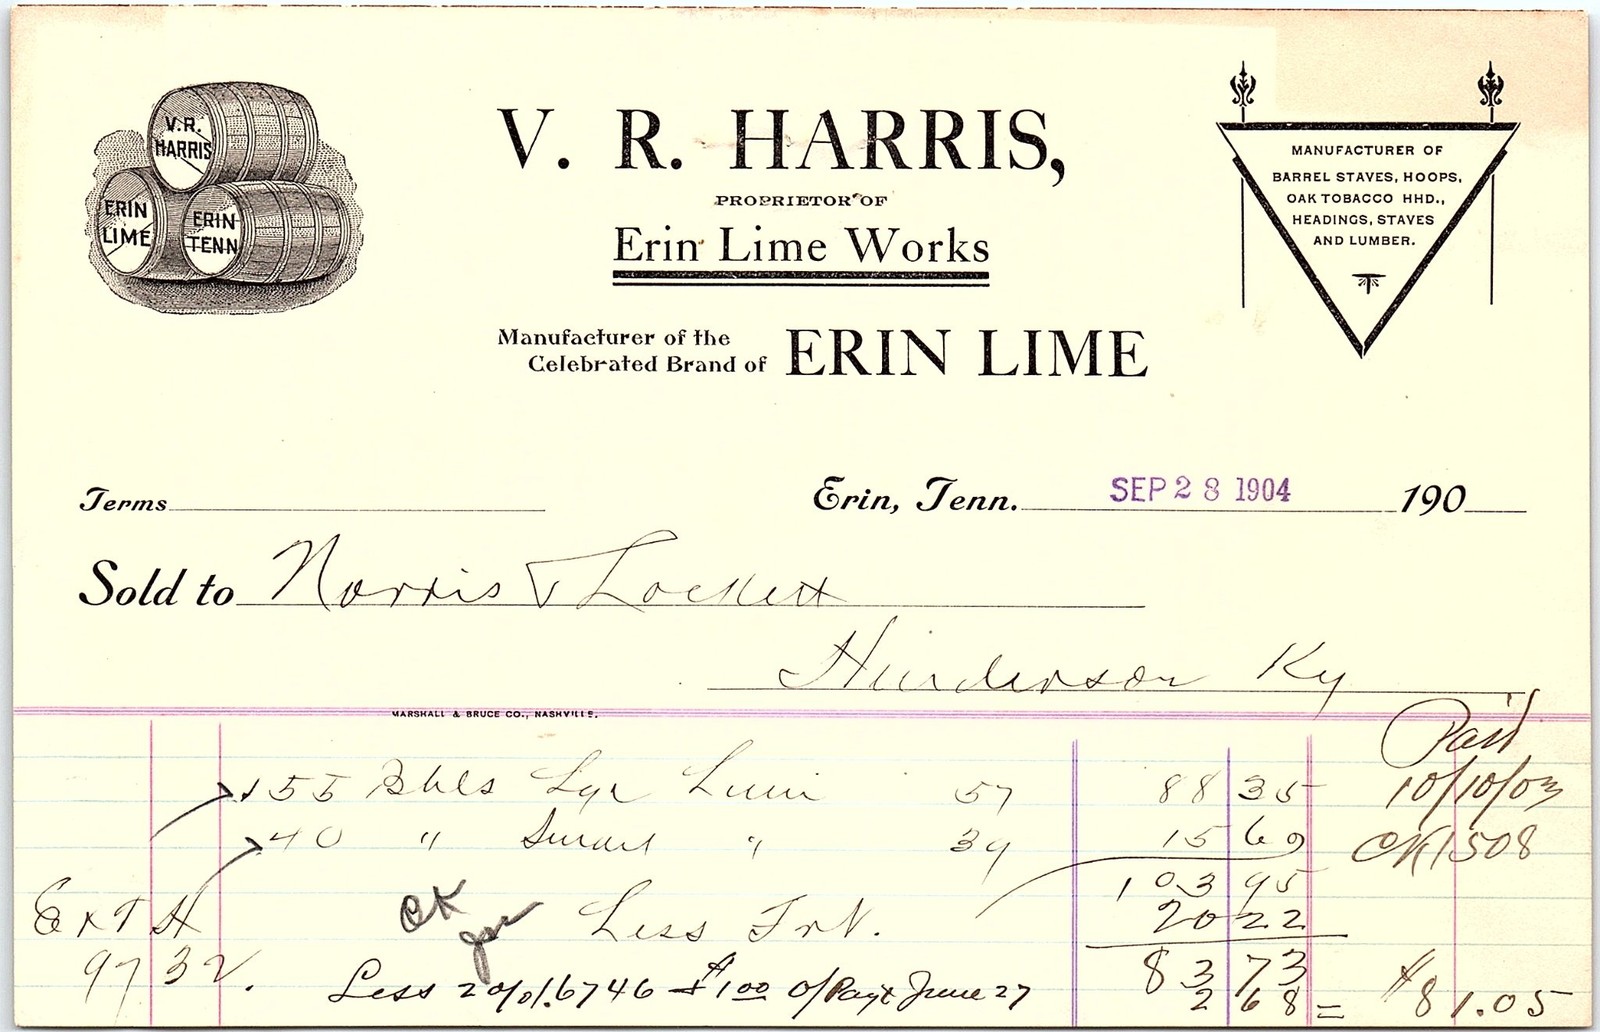 V.R. HARRIS
ERIN LIME
ERIN TENN
V. R. HARRIS,
PROPRIETOR OF
Erin Lime Works
Manufacturer of the
Celebrated Brand of ERIN LIME
MANUFACTURER OF
BARREL STAVES, HOOPS,
OAK TOBACCO HHD.,
HEADINGS, STAVES
AND LUMBER.
Terms
Erin, Tenn. SEP 28 1904 190
Sold to Norris & Lockett
Henderson Ky
MARSHALL & BRUCE CO., NASHVILLE.
Paid
155 Bbls Lime 57 88 35 10/10/03
40 " " 39 15 60 CK 1508
103 95
Ext H CK Less Frt. 20 22
97 32 83 73
Less 2% 67 46 $1.00 O/Payt June 27 2 68 = $81.05